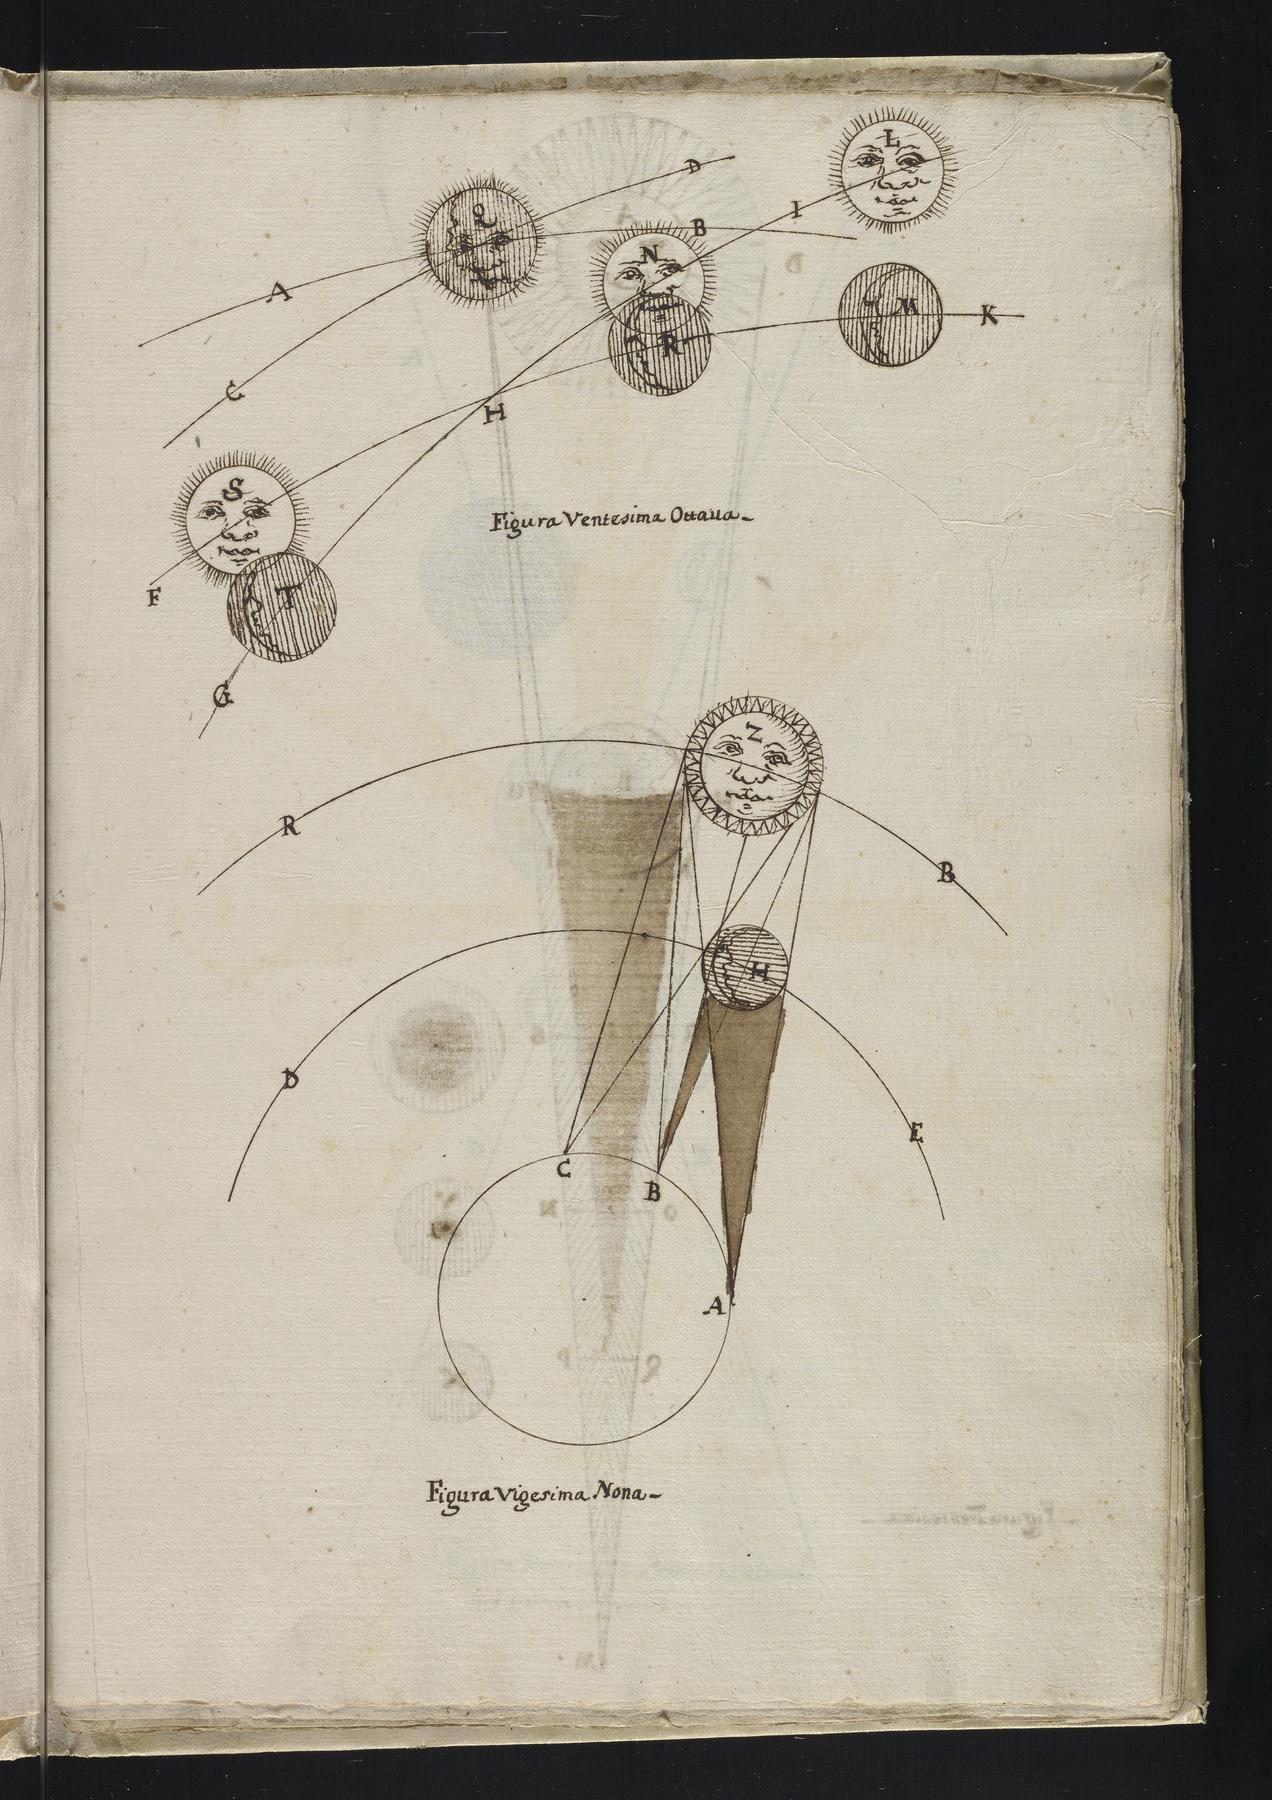 L
D
Q
I
B
N
A
M
K
R
C
H
S
Figura Ventesima Ottaua
F
T
G
Z
R
B
H
D
E
C
B
A
Figura Vigesima Nona